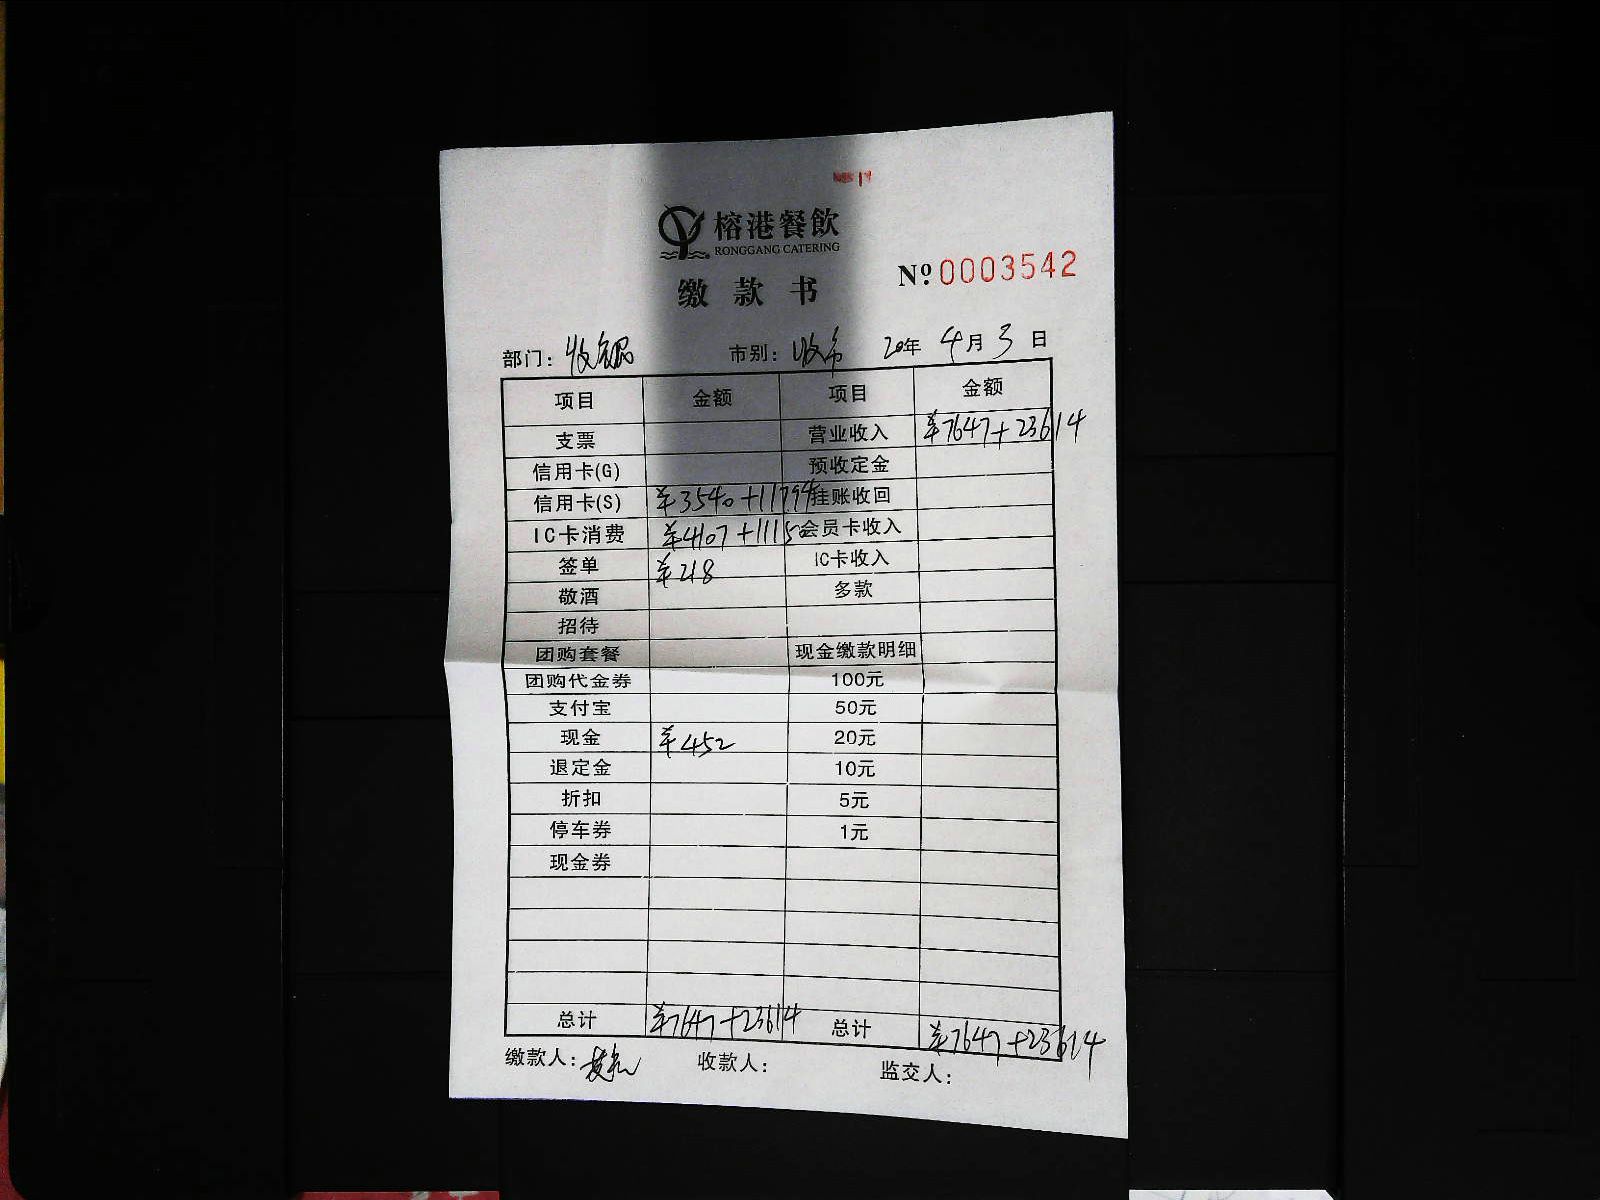 榕港餐飲
RONGGANG CATERING
缴款书 Nº:0003542
部门: 收银 市别: 收市 20年 4月3日
项目 金额 项目 金额
支票 营业收入 ¥7647+23614
信用卡(G) 预收定金
信用卡(S) ¥3540+11794 挂账收回
IC卡消费 ¥4107+11150 会员卡收入
签单 ¥218 IC卡收入
敬酒 多款
招待
团购套餐 现金缴款明细
团购代金券 100元
支付宝 50元
现金 ¥452 20元
退定金 10元
折扣 5元
停车券 1元
现金券
总计 ¥7647+23614 总计 ¥7647+23614
缴款人: 收款人: 监交人: